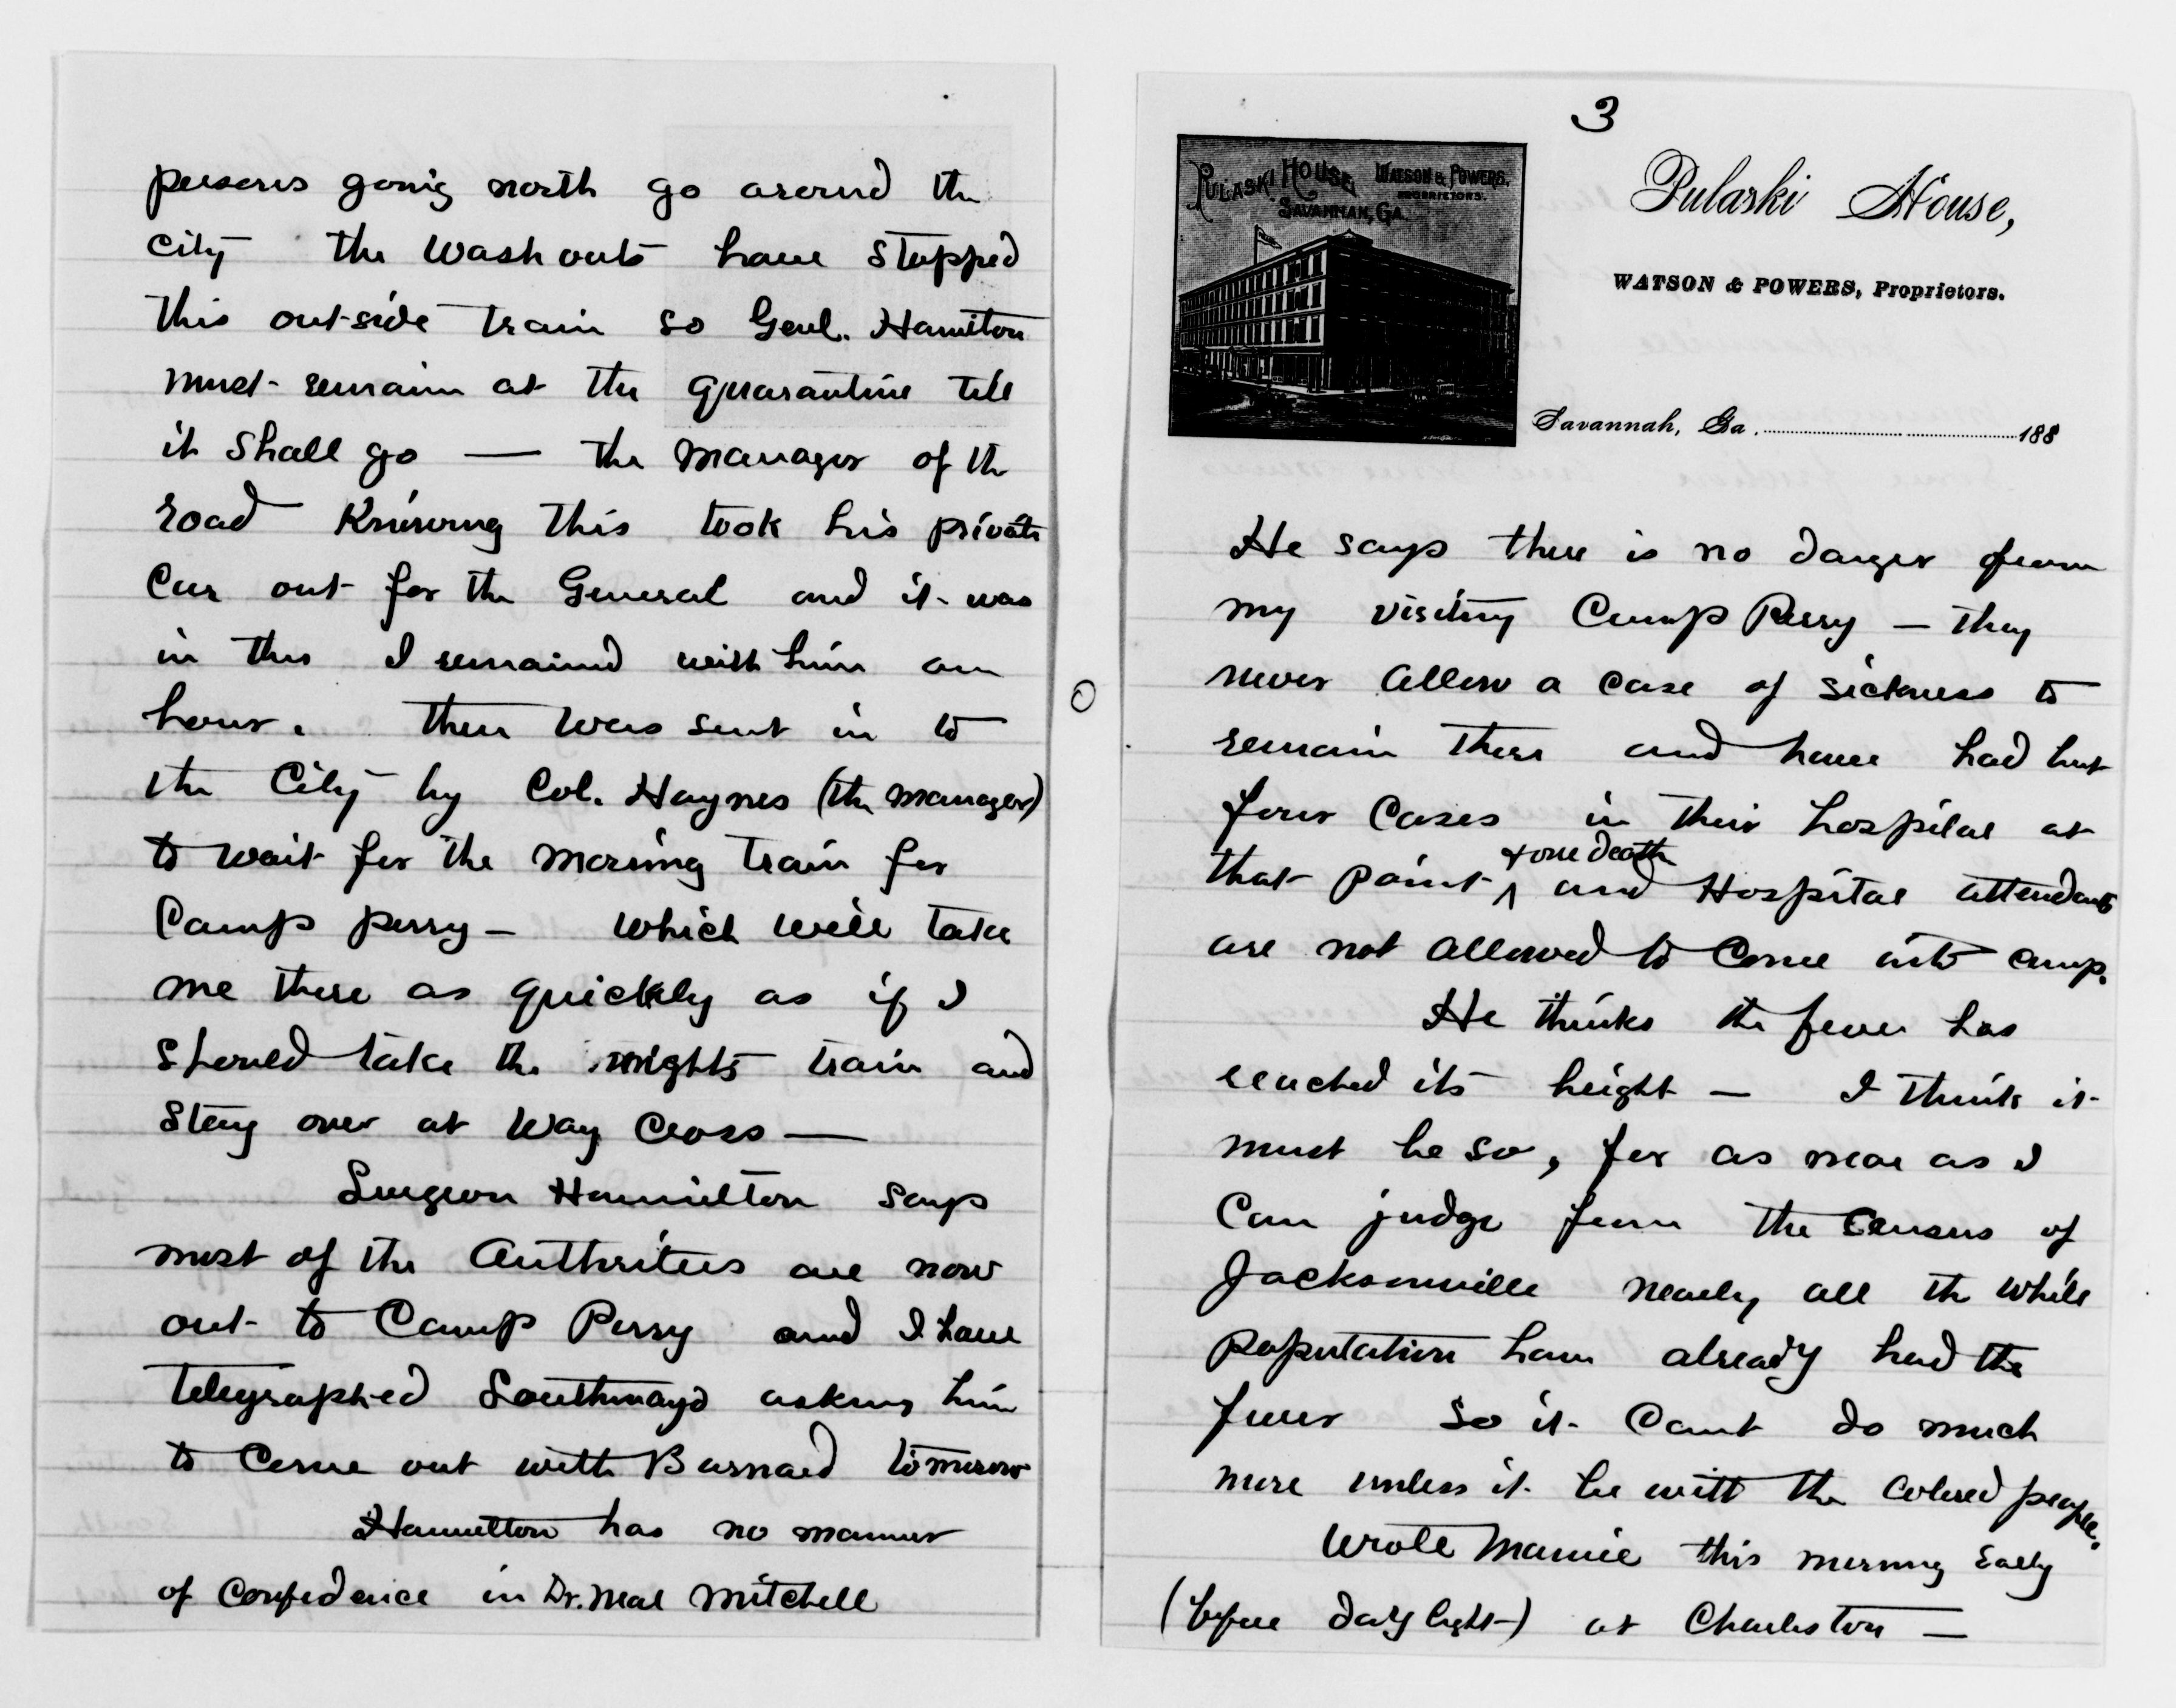 persons going north go around the
city the wash outs have stopped
this outside train so Genl. Hamilton
must remain at the quarantine till
it shall go — the manager of the
road Knowing this took his private
Car out for the General and it was
in this I remained with him an
hour. then was sent in to
the City by Col. Haynes (the manager)
to wait for the morning train for
Camp perry – which will take
me there as quickly as if I
should take the nights train and
Stay over at Way Cross —
Surgeon Hamilton says
most of the Authrities are now
out to Camp Perry and I have
telegraphed Southmayd asking him
to Come out with Barnard tomorrow
Hamilton has no manner
of Confidence in Dr. Neal Mitchell
3
PULASKI HOUSE, WATSON & POWERS,
PROPRIETORS.
SAVANNAH, GA.
Pulaski House,
WATSON & POWERS, Proprietors.
Savannah, Ga. 188
He says there is no danger from
my visiting Camp Perry – they
never allow a case of sickness to
remain there and have had but
four Cases in their hospital at
that point, + one death and Hospital attendants
are not allowed to Come into camp.
He thinks the fever has
reached its height – I think it
must be so, for as near as I
Can judge from the Census of
Jacksonville nearly all the white
population have already had the
fever so it Cant do much
more unless it be with the Colored people.
Wrote Mamie this morning Early
(before day light) at Charleston —